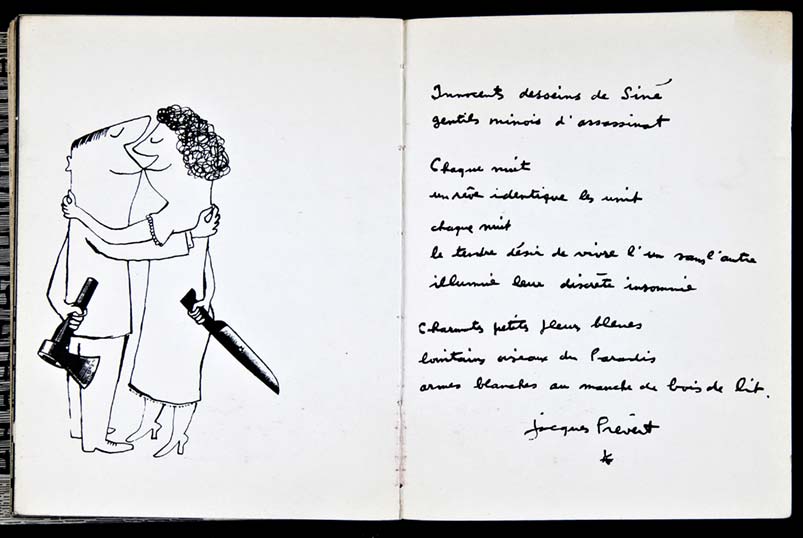 Innocents desseins de Siné
gentils minois d'assassinat
Chaque nuit
un rêve identique les unit
chaque nuit
le tendre désir de vivre l'un sans l'autre
illumine leur discrète insomnie
Charmants petits fleurs bleues
lointains oiseaux du Paradis
armes blanches au manche de bois de lit.
Jacques Prévert